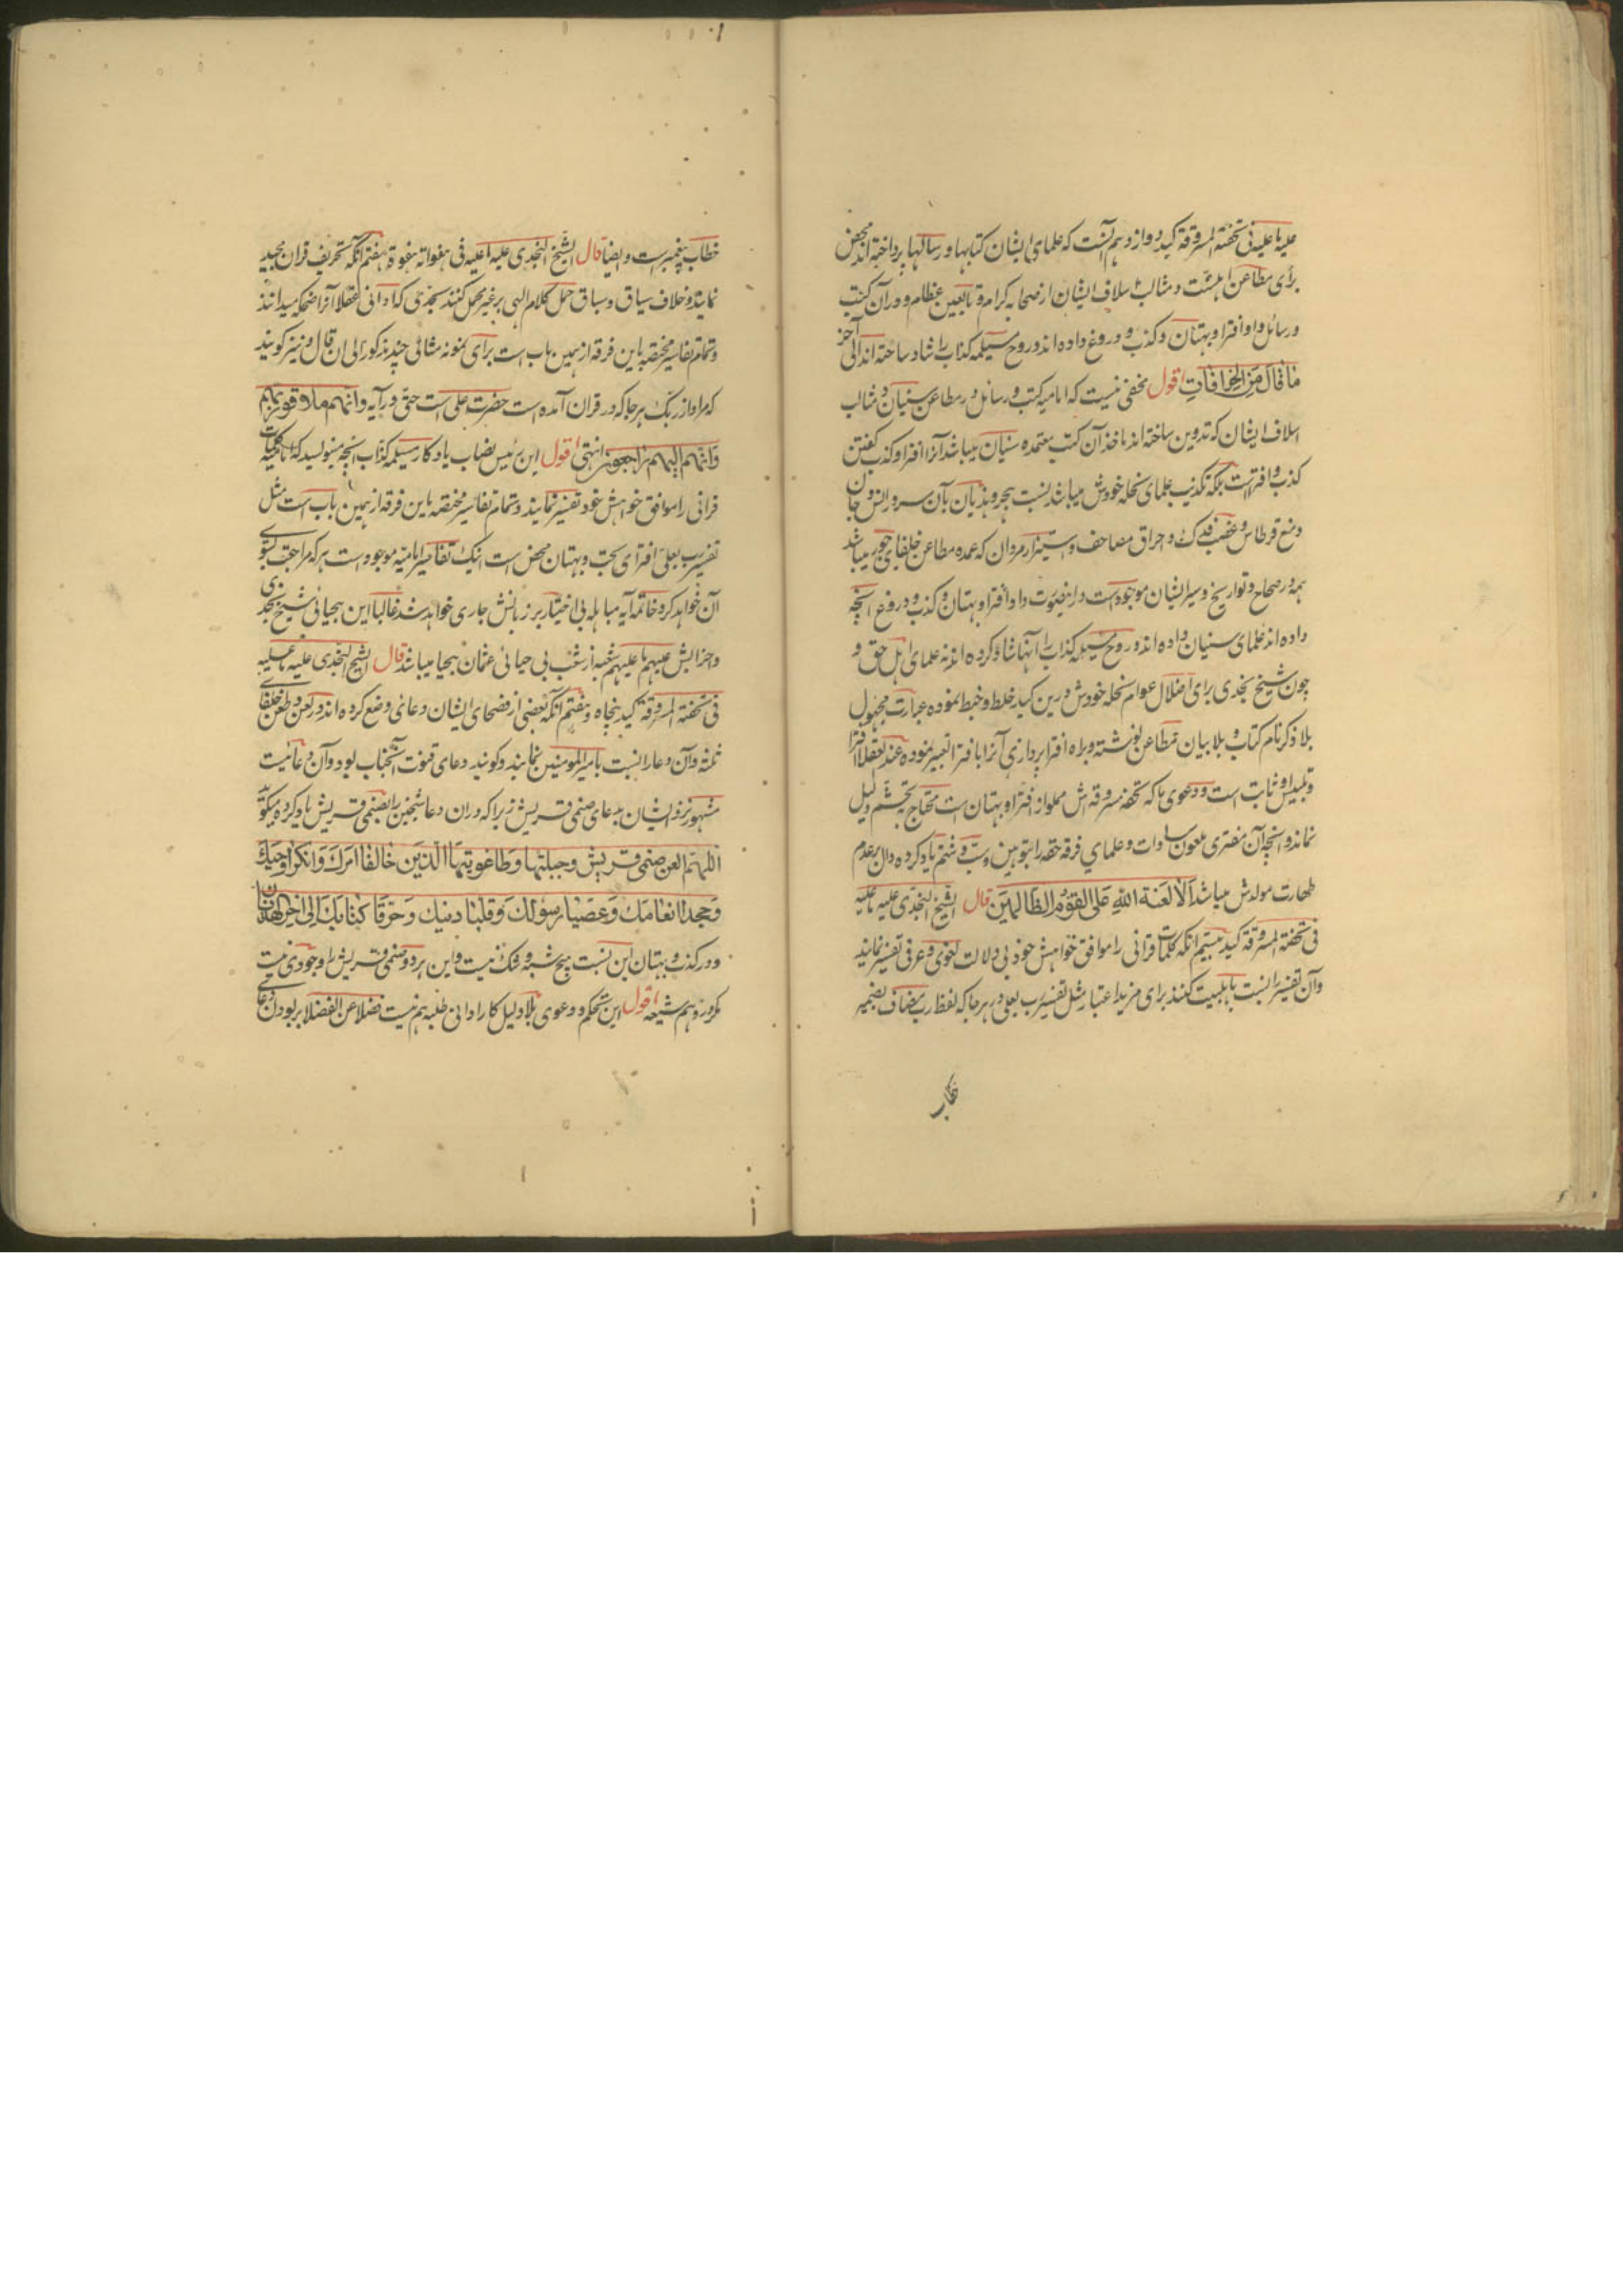 علیه ما علیه فی تحفته المسروقة کید دوازدهم آنست که علمای ایشان کتابها و رسالها پرداخته‌اند محض
برای مطاعن اهلسنت و مثالب اسلاف ایشان از صحابه کرام و تابعین عظام و در آن کتب
و رسائل داد افترا و بهتان و کذب و دروغ داده‌اند و روح مسیلمه کذاب را شاد ساخته‌اند الی آخر
ما قال من الخرافات اقول مخفی نیست که امامیه کتب و رسائل در مطاعن سنیان و مثالب
اسلاف ایشان که تدوین ساخته‌اند ماخذ آن کتب معتمده سنیان میباشد آنرا افترا و کذب گفتن
کذب و افتراست بلکه تکذیب علمای نحله خودش میباشد نسبت هجر و هذیان بآن سرور انس و جان
و منع قرطاس و غصب فدک و احراق مصاحف و مردان که عمده مطاعن خلفای جور میباشد
همه در صحاح و تواریخ و سیر ایشان موجود است درینصورت داد افترا و بهتان و کذب و دروغ آنچه
داده‌اند علمای سنیان داده‌اند و روح مسیلمه کذاب را آنها شاد کرده‌اند نه علمای اهل حق و
چون شیخ نجدی برای اضلال عوام نحله خودش درین کید خلط و خبط نموده عبارت مجهول
بلا ذکر نام کتاب و بلا بیان مطاعن نوشته و براه افترا پردازی آنرا بافترا تعبیر نموده عند العقلا افترا
و تلبیس او ثابت است و دعوی ما که تحفه مسروقه‌اش مملو از افترا و بهتان است محتاج بتجشم دلیل
نماند و آنچه آن مفتری ملعون سادات و علمای فرقه حقه را بتوهین و سب و شتم یاد کرده دال بر عدم
طهارت مولدش میباشد الا لعنة الله علی القوم الظالمین قال الشیخ النجدی علیه ما علیه
فی تحفته المسروقة کید بیستم آنکه کلمات قرآنی را موافق خواهش خود بی دلالت لغوی و عرفی تفسیر نمایند
و آن تفسیر را نسبت باهلبیت کنند برای مزید اعتبار مثل تفسیر رب بعلی در هر جا که لفظ رب مضاف بضمیر
خطاب
خطاب پیغمبر است و ایضا قال الشیخ النجدی علیه ما علیه فی هفواته هفوة هفتم آنکه تحریف قرآن مجید
نمایند و خلاف سیاق و سباق حمل کلام الهی بر غیر محمل کنند بحدی که ادانی عقلا آنرا ضحکه میدانند
و تمام تفاسیر مختصه باین فرقه از همین باب است برای نمونه مثالی چند مذکور الی ان قال و نیز گویند
که مراد از ربک هر جا که در قرآن آمده است حضرت علی است حتی در آیه و انهم ملاقو ربهم
و انهم الیهم راجعون انتهی اقول این رئیس نصاب یادگار مسیلمه کذاب آنچه مینویسد که تا کلمات
قرآنی را موافق خواهش خود تفسیر نمایند و تمام تفاسیر مختصه باین فرقه از همین باب است مثل
تفسیر رب بعلی افترای بحت و بهتان محض است اینک تفاسیر امامیه موجود است هر که مراجعت بسوی
آن خواهد کرد خاتمه آیه مباهله بی اختیار بر زبانش جاری خواهد شد غالبا این بیحیائی شیخ نجدی
و احزابش علیهم ما علیهم شعبه از شعب بی حیائی عثمان بیحیا میباشد قال الشیخ النجدی علیه ما علیه
فی تحفته المسروقة کید پنجاه و هفتم آنکه بعضی از فصحای ایشان دعائی وضع کرده‌اند در لعن و طعن خلفای
ثلثه و آن دعا را نسبت بامیر المومنین نمایند و گویند دعای قنوت آنجناب بود و آن دعائیست
مشهور نزد ایشان بدعای صنمی قریش زیرا که در آن دعا شیخین را بصنمی قریش یاد کرده میگوید
اللهم العن صنمی قریش و جبتیها و طاغوتیها الذین خالفا امرک و انکرا وحیک
و جحدا انعامک و عصیا رسولک و قلبا دینک و حرفا کتابک الی اخر الهذیان
و در کذب و بهتان این نسبت هیچ شبهه و شک نیست و این هر دو صنمی قریش را وجودی نیست
مگر در وهم شیعه اقول این تحکم و دعوی بلا دلیل کار ادانی طلبه هم نیست فضلا عن الفضلا بر بودن دعای